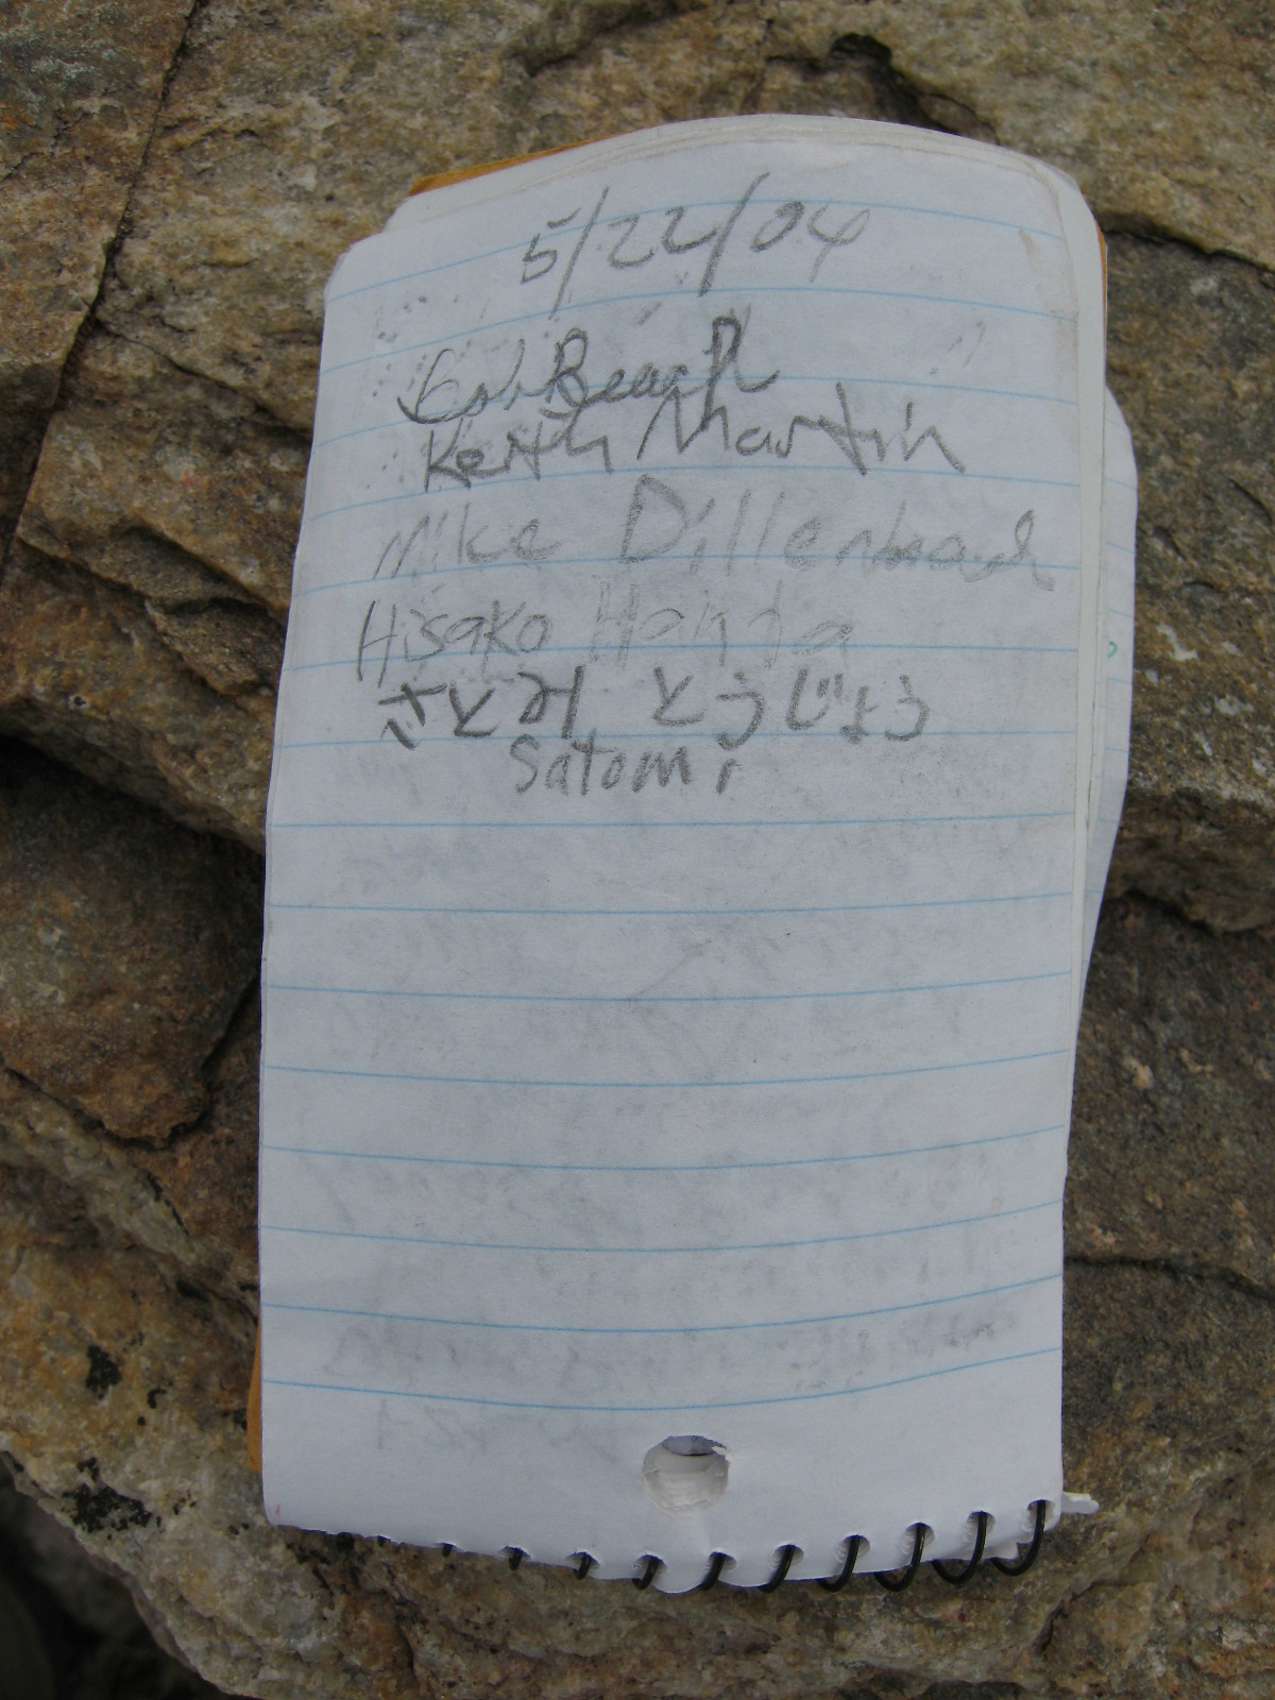 5/22/04
Beach
Keith Martin
Mike Dillenbeach
Hisako Handa
さとみ とうじょう
Satomi